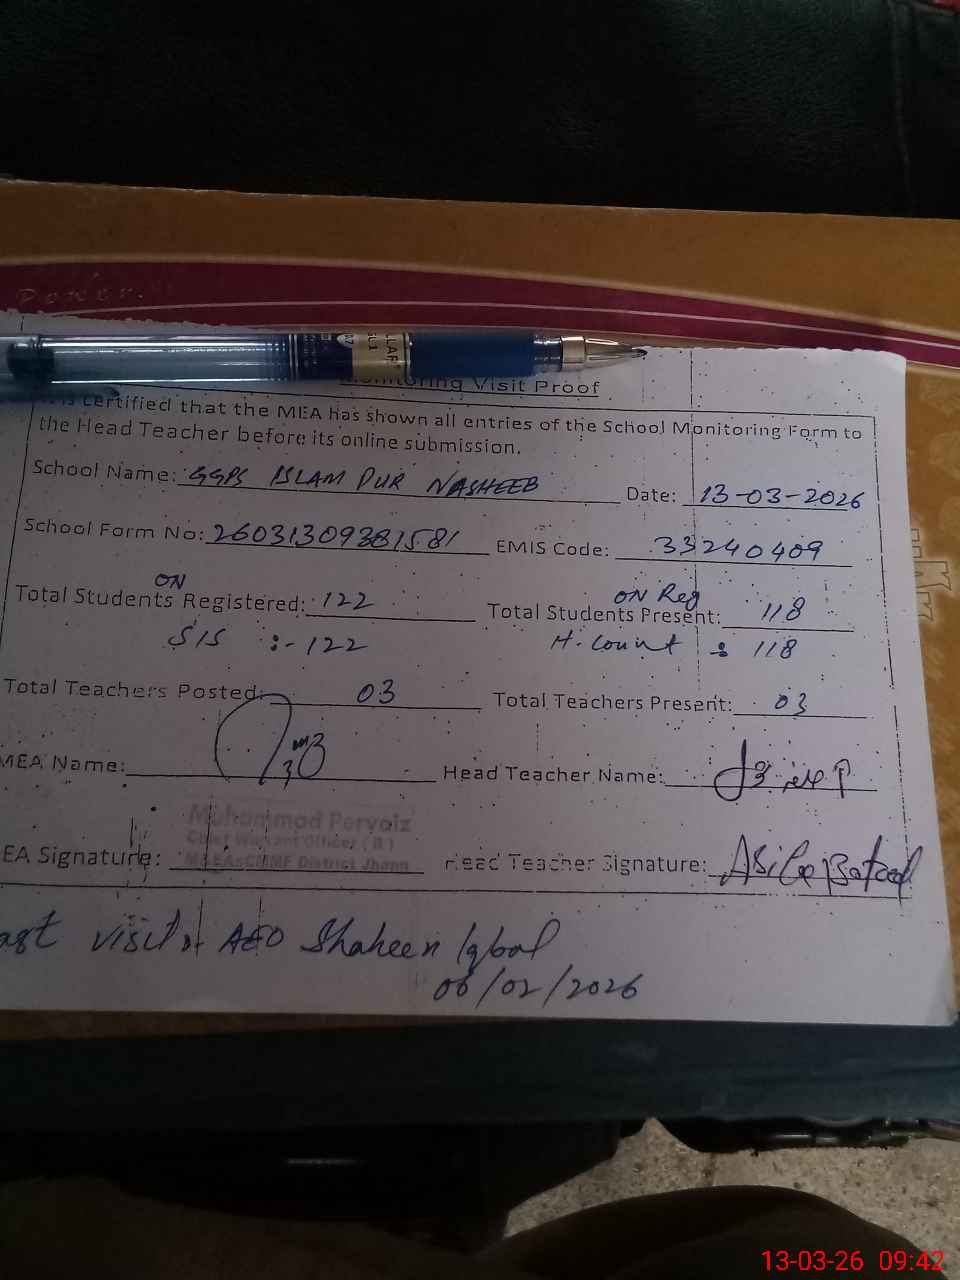 Monitoring Visit Proof
is certified that the MEA has shown all entries of the School Monitoring Form to
the Head Teacher before its online submission.
School Name: GGPS ISLAM PUR NASHEEB Date: 13-03-2026
School Form No: 26031309381581 EMIS Code: 33240409
ON ON Reg
Total Students Registered: 122 Total Students Present: 118
SIS :- 122 H. Count : 118
Total Teachers Posted: 03 Total Teachers Present: 03
MEA Name: Head Teacher Name:
Muhammad Pervaiz
Chief Warrant Officer (R)
EA Signature: M&EAsCMMF District Jhang Head Teacher Signature:
ast visit of AEO Shaheen Iqbal
06/02/2026
13-03-26 09:42